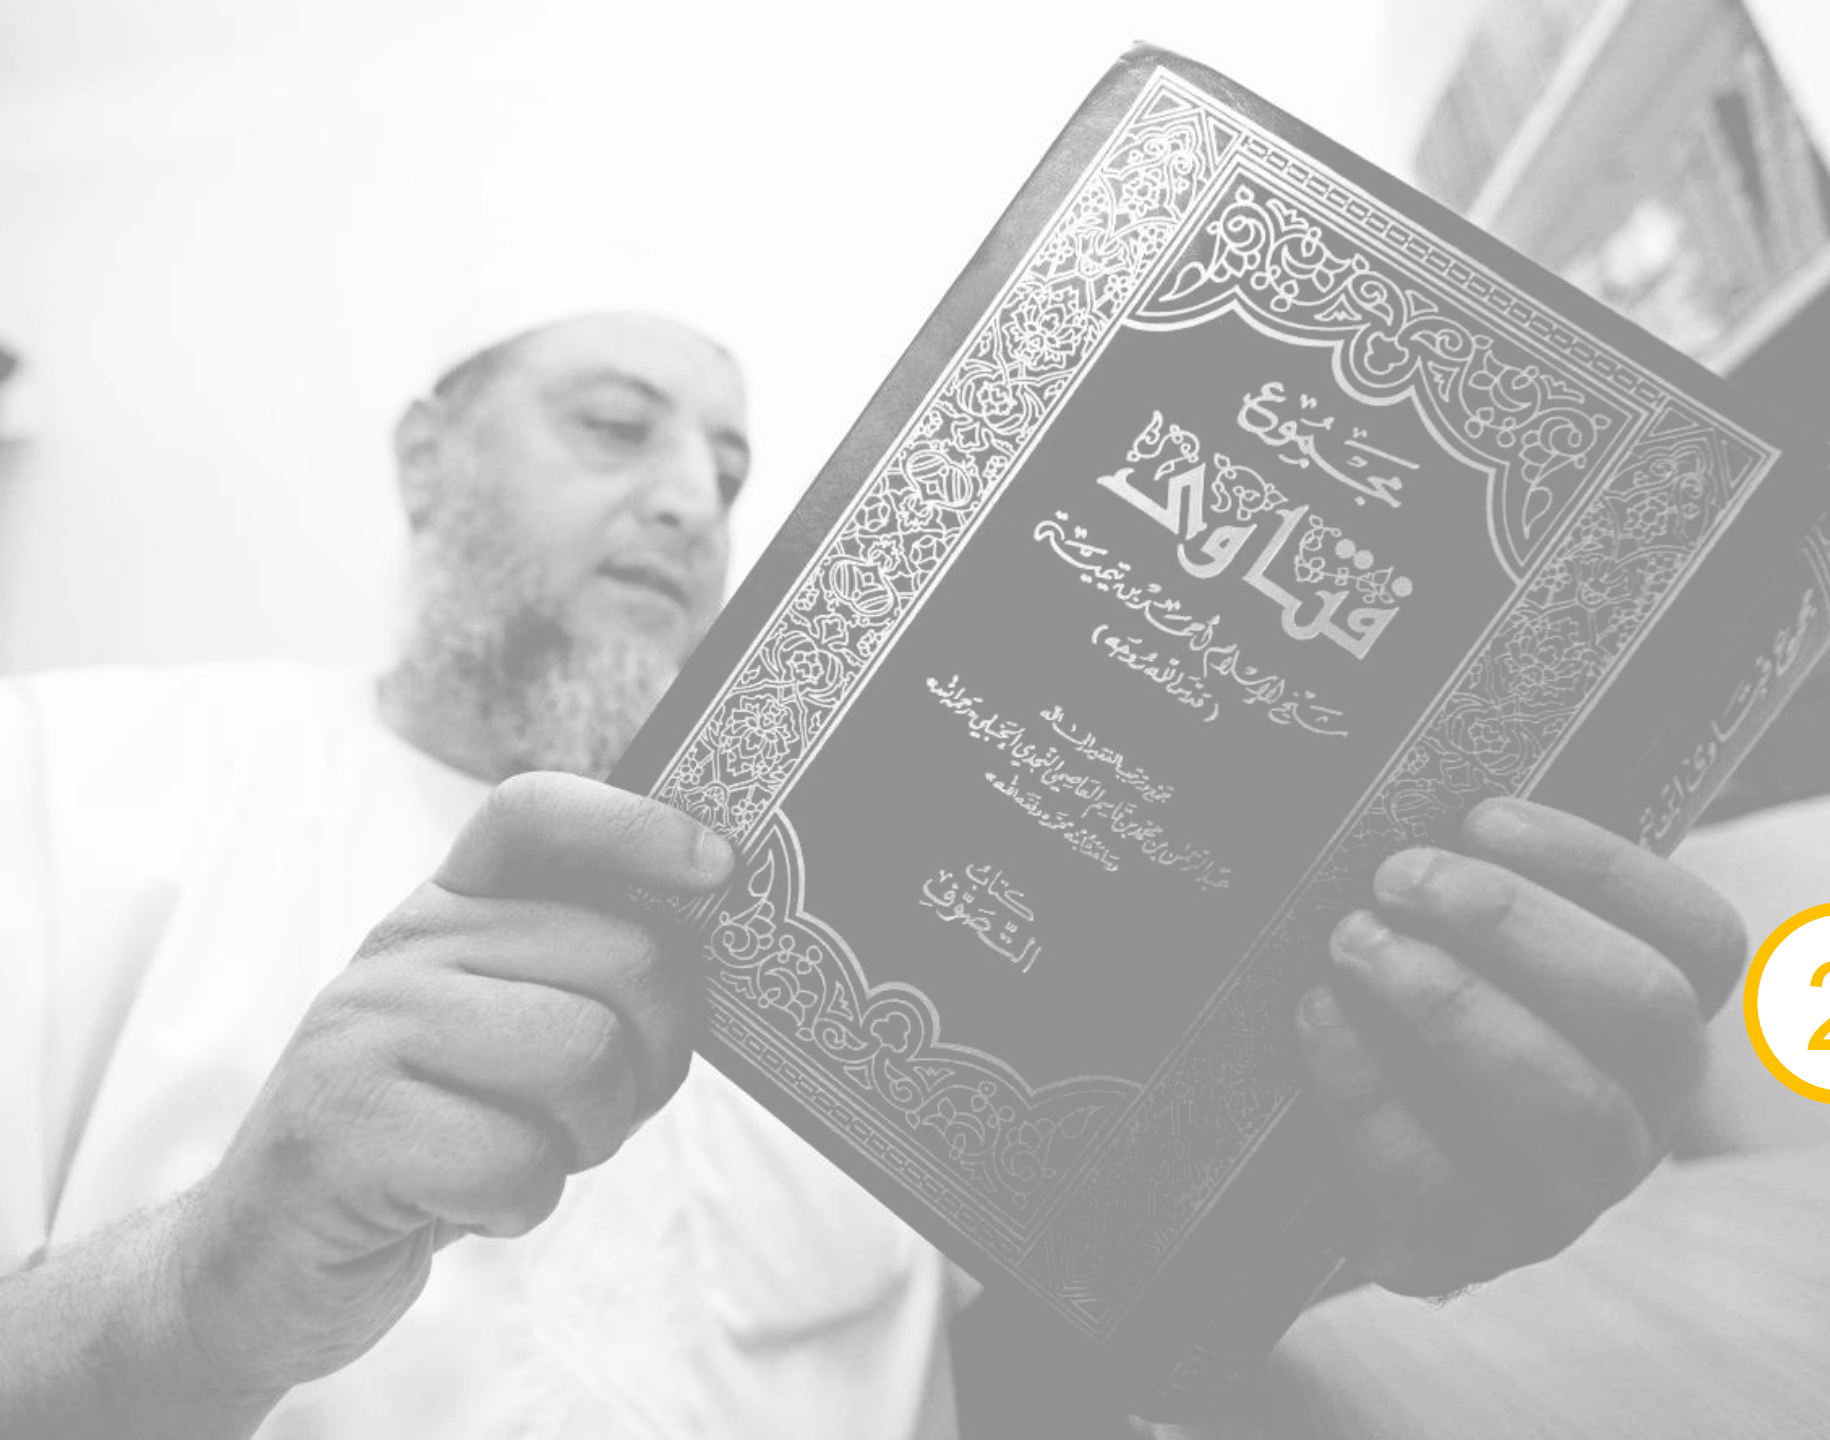 مجموع
فتاوى
شيخ الإسلام أحمد بن تيمية
(قدس الله روحه)
جمع وترتيب الفقير إلى الله
عبد الرحمن بن محمد بن قاسم العاصمي النجدي الحنبلي رحمه الله
وساعده ابنه محمد وفقه الله
كتاب
التصوف
2